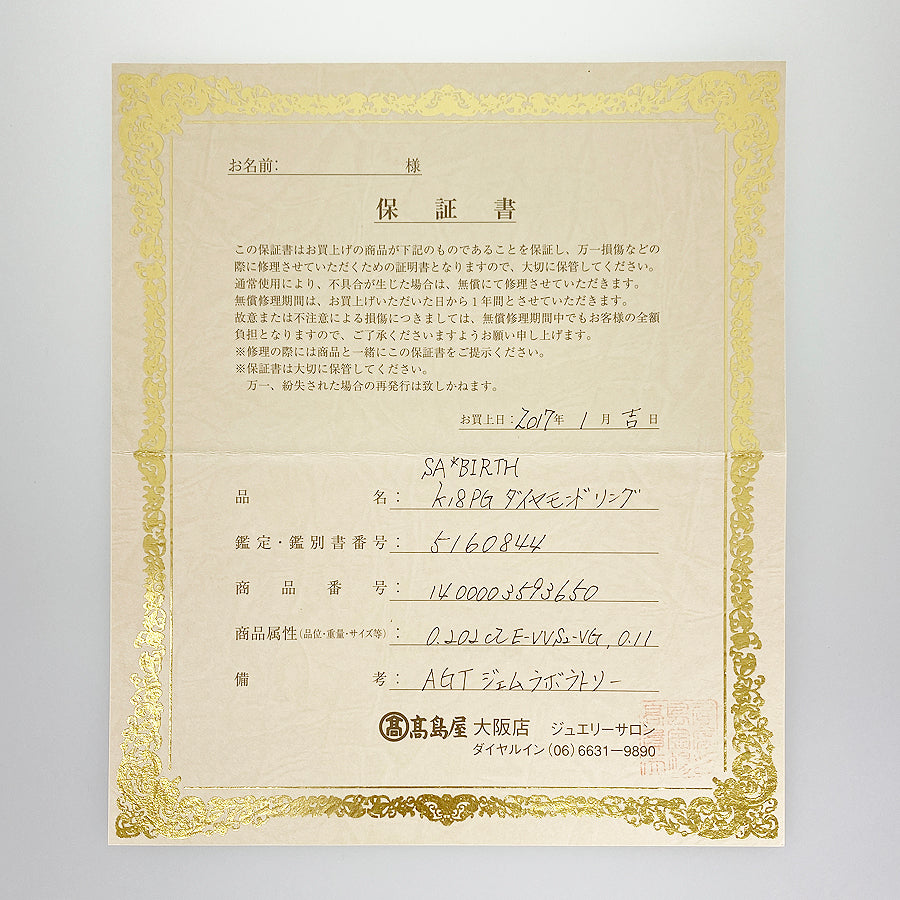 お名前: 様
保証書
この保証書はお買上げの商品が下記のものであることを保証し、万一損傷などの
際に修理させていただくための証明書となりますので、大切に保管してください。
通常使用により、不具合が生じた場合は、無償にて修理させていただきます。
無償修理期間は、お買上げいただいた日から1年間とさせていただきます。
故意または不注意による損傷につきましては、無償修理期間中でもお客様の全額
負担となりますので、ご了承くださいますようお願い申し上げます。
※修理の際には商品と一緒にこの保証書をご提示ください。
※保証書は大切に保管してください。
万一、紛失された場合の再発行は致しかねます。
お買上日: 2017年 1月 吉日
SA*BIRTH
品名: K18PG ダイヤモンドリング
鑑定・鑑別書番号: 5160844
商品番号: 1400003593650
商品属性(品位・重量・サイズ等): 0.202ct E-VVS2-VG, 0.11
備考: AGT ジェムラボラトリー
髙 髙島屋 大阪店 ジュエリーサロン
ダイヤルイン(06)6631-9890